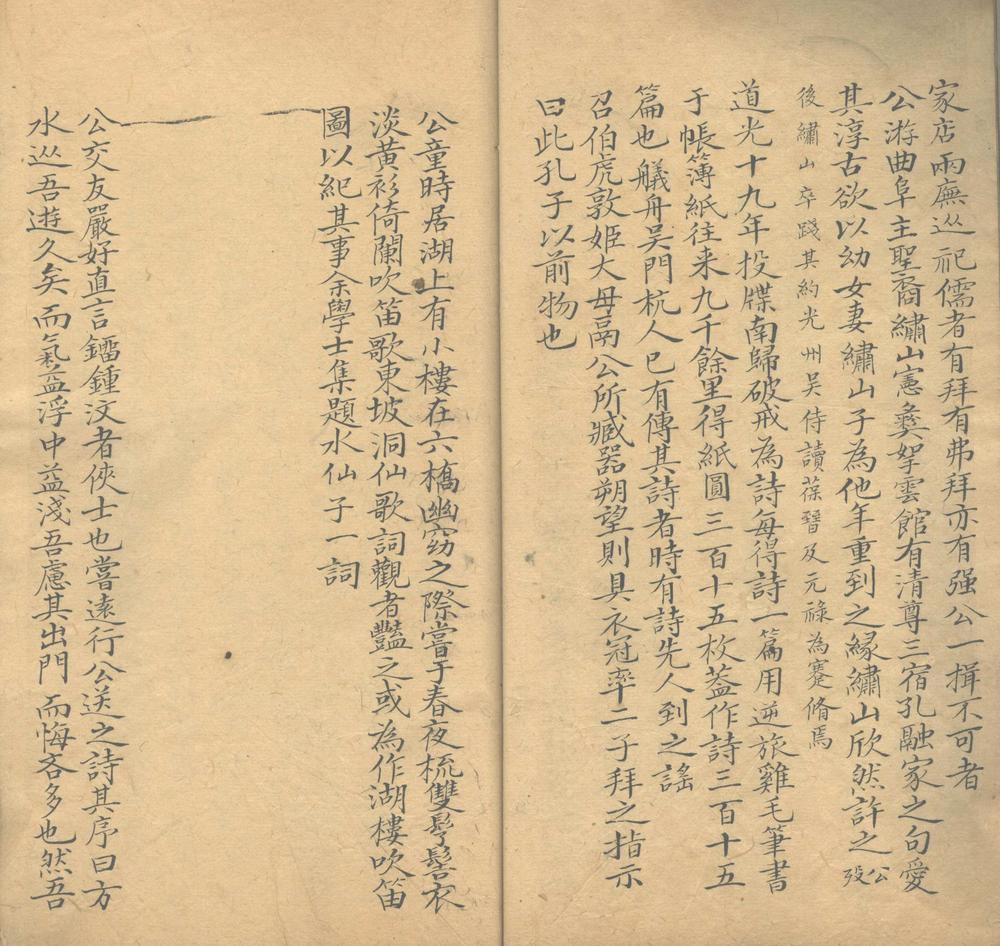 家店兩廡逬祀儒者有拜有弗拜亦有强公一揖不可者
公游曲阜主聖裔繡山憲彝挐雲館有清尊三宿孔融家之句愛
其淳古欲以幼女妻繡山子為他年重到之緣繡山欣然許之公歿
後繡山卒踐其約光州吳侍讀葆晉及元祿為蹇脩焉
道光十九年投牒南歸破戒為詩每得詩一篇用逆旅雞毛筆書
于帳簿紙往来九千餘里得紙圓三百十五枚蓋作詩三百十五
篇也艤舟吳門杭人已有傳其詩者時有詩先人到之謠
召伯虎敦姬大母鬲公所臧器朔望則具衣冠率二子拜之指示
曰此孔子以前物也
公童時居湖上有小樓在六橋幽窈之際嘗于春夜梳雙髻衣
淡黃衫倚闌吹笛歌東坡洞仙歌詞觀者豔之或為作湖樓吹笛
圖以紀其事余學士集題水仙子一詞
公交友嚴好直言鐂鍾汶者俠士也嘗遠行公送之詩其序曰方
水逬吾遊久矣而氣益浮中益淺吾慮其出門而悔吝多也然吾